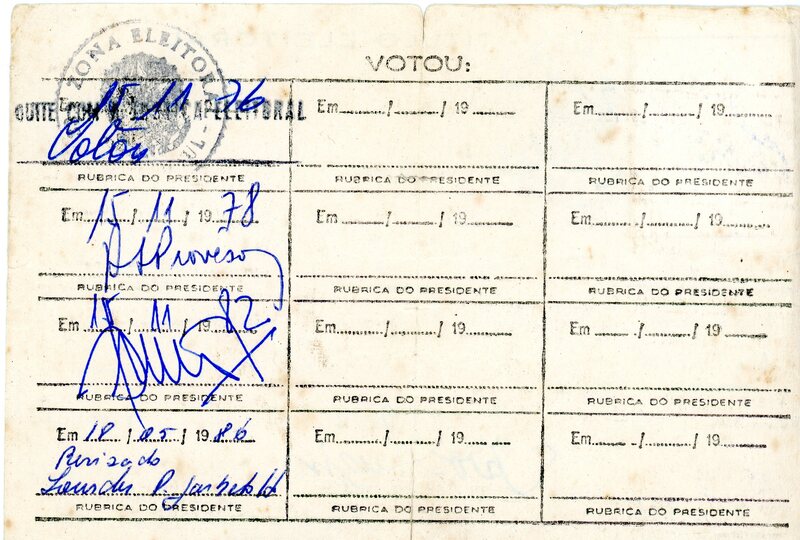 ZONA ELEITORAL
VOTOU:
15 11 76
QUITE COM
Em ......./......./ 19 .......
Em ......./......./ 19 .......
RUBRICA DO PRESIDENTE
RUBRICA DO PRESIDENTE
RUBRICA DO PRESIDENTE
Em 15 / 11 / 19 78
Em ......./......./ 19 .......
Em ......./......./ 19 .......
RUBRICA DO PRESIDENTE
RUBRICA DO PRESIDENTE
RUBRICA DO PRESIDENTE
Em 15 / 11 / 19 82
Em ......./......./ 19 .......
Em ......./......./ 19 .......
RUBRICA DO PRESIDENTE
RUBRICA DO PRESIDENTE
RUBRICA DO PRESIDENTE
Em 18 / 05 / 19 86
Em ......./......./ 19 .......
Em ......./......./ 19 .......
Revisado
Lourdes P.
RUBRICA DO PRESIDENTE
RUBRICA DO PRESIDENTE
RUBRICA DO PRESIDENTE